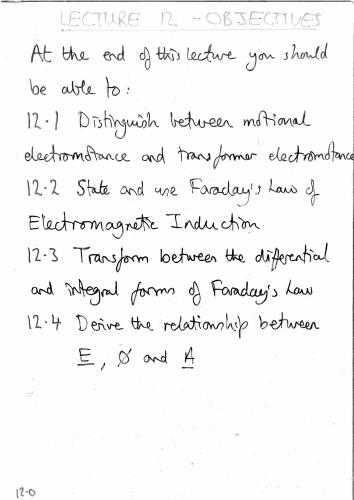 LECTURE 12 - OBJECTIVES
At the end of this lecture you should
be able to:
12.1 Distinguish between motional
electromotance and transformer electromotance
12.2 State and use Faraday's Law of
Electromagnetic Induction
12.3 Transform between the differential
and integral forms of Faraday's Law
12.4 Derive the relationship between
E, Ø and A
12.0